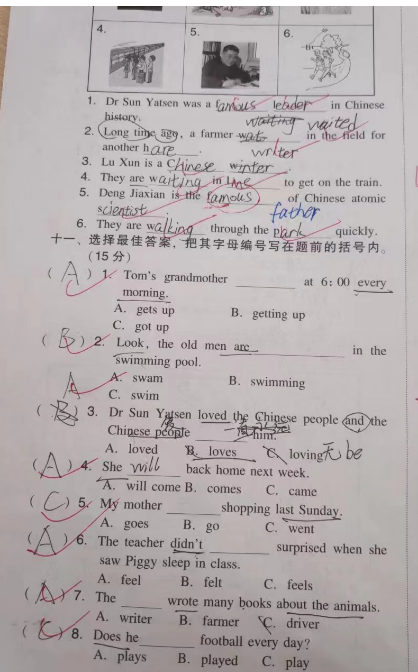 4. 5. 6.
1. Dr Sun Yatsen was a famous leader in Chinese
history. waiting waited
2. Long time ago, a farmer wat in the field for
another hare. writer
3. Lu Xun is a Chinese winter.
4. They are waiting in line to get on the train.
5. Deng Jiaxian is the famous of Chinese atomic
scientist. father
6. They are walking through the park quickly.
十一、选择最佳答案,把其字母编号写在题前的括号内。
(15 分)
(A) 1. Tom's grandmother ______ at 6:00 every
morning.
A. gets up B. getting up
C. got up
(B) 2. Look, the old men are ______ in the
swimming pool.
A. swam B. swimming
C. swim
A
(B) 3. Dr Sun Yatsen loved the Chinese people and the
Chinese people ______ him.
A. loved B. loves C. loving 无 be
(A) 4. She will back home next week.
A. will come B. comes C. came
(C) 5. My mother ______ shopping last Sunday.
A. goes B. go C. went
(A) 6. The teacher didn't ______ surprised when she
saw Piggy sleep in class.
A. feel B. felt C. feels
(A) 7. The ______ wrote many books about the animals.
A. writer B. farmer C. driver
(C) 8. Does he ______ football every day?
A. plays B. played C. play